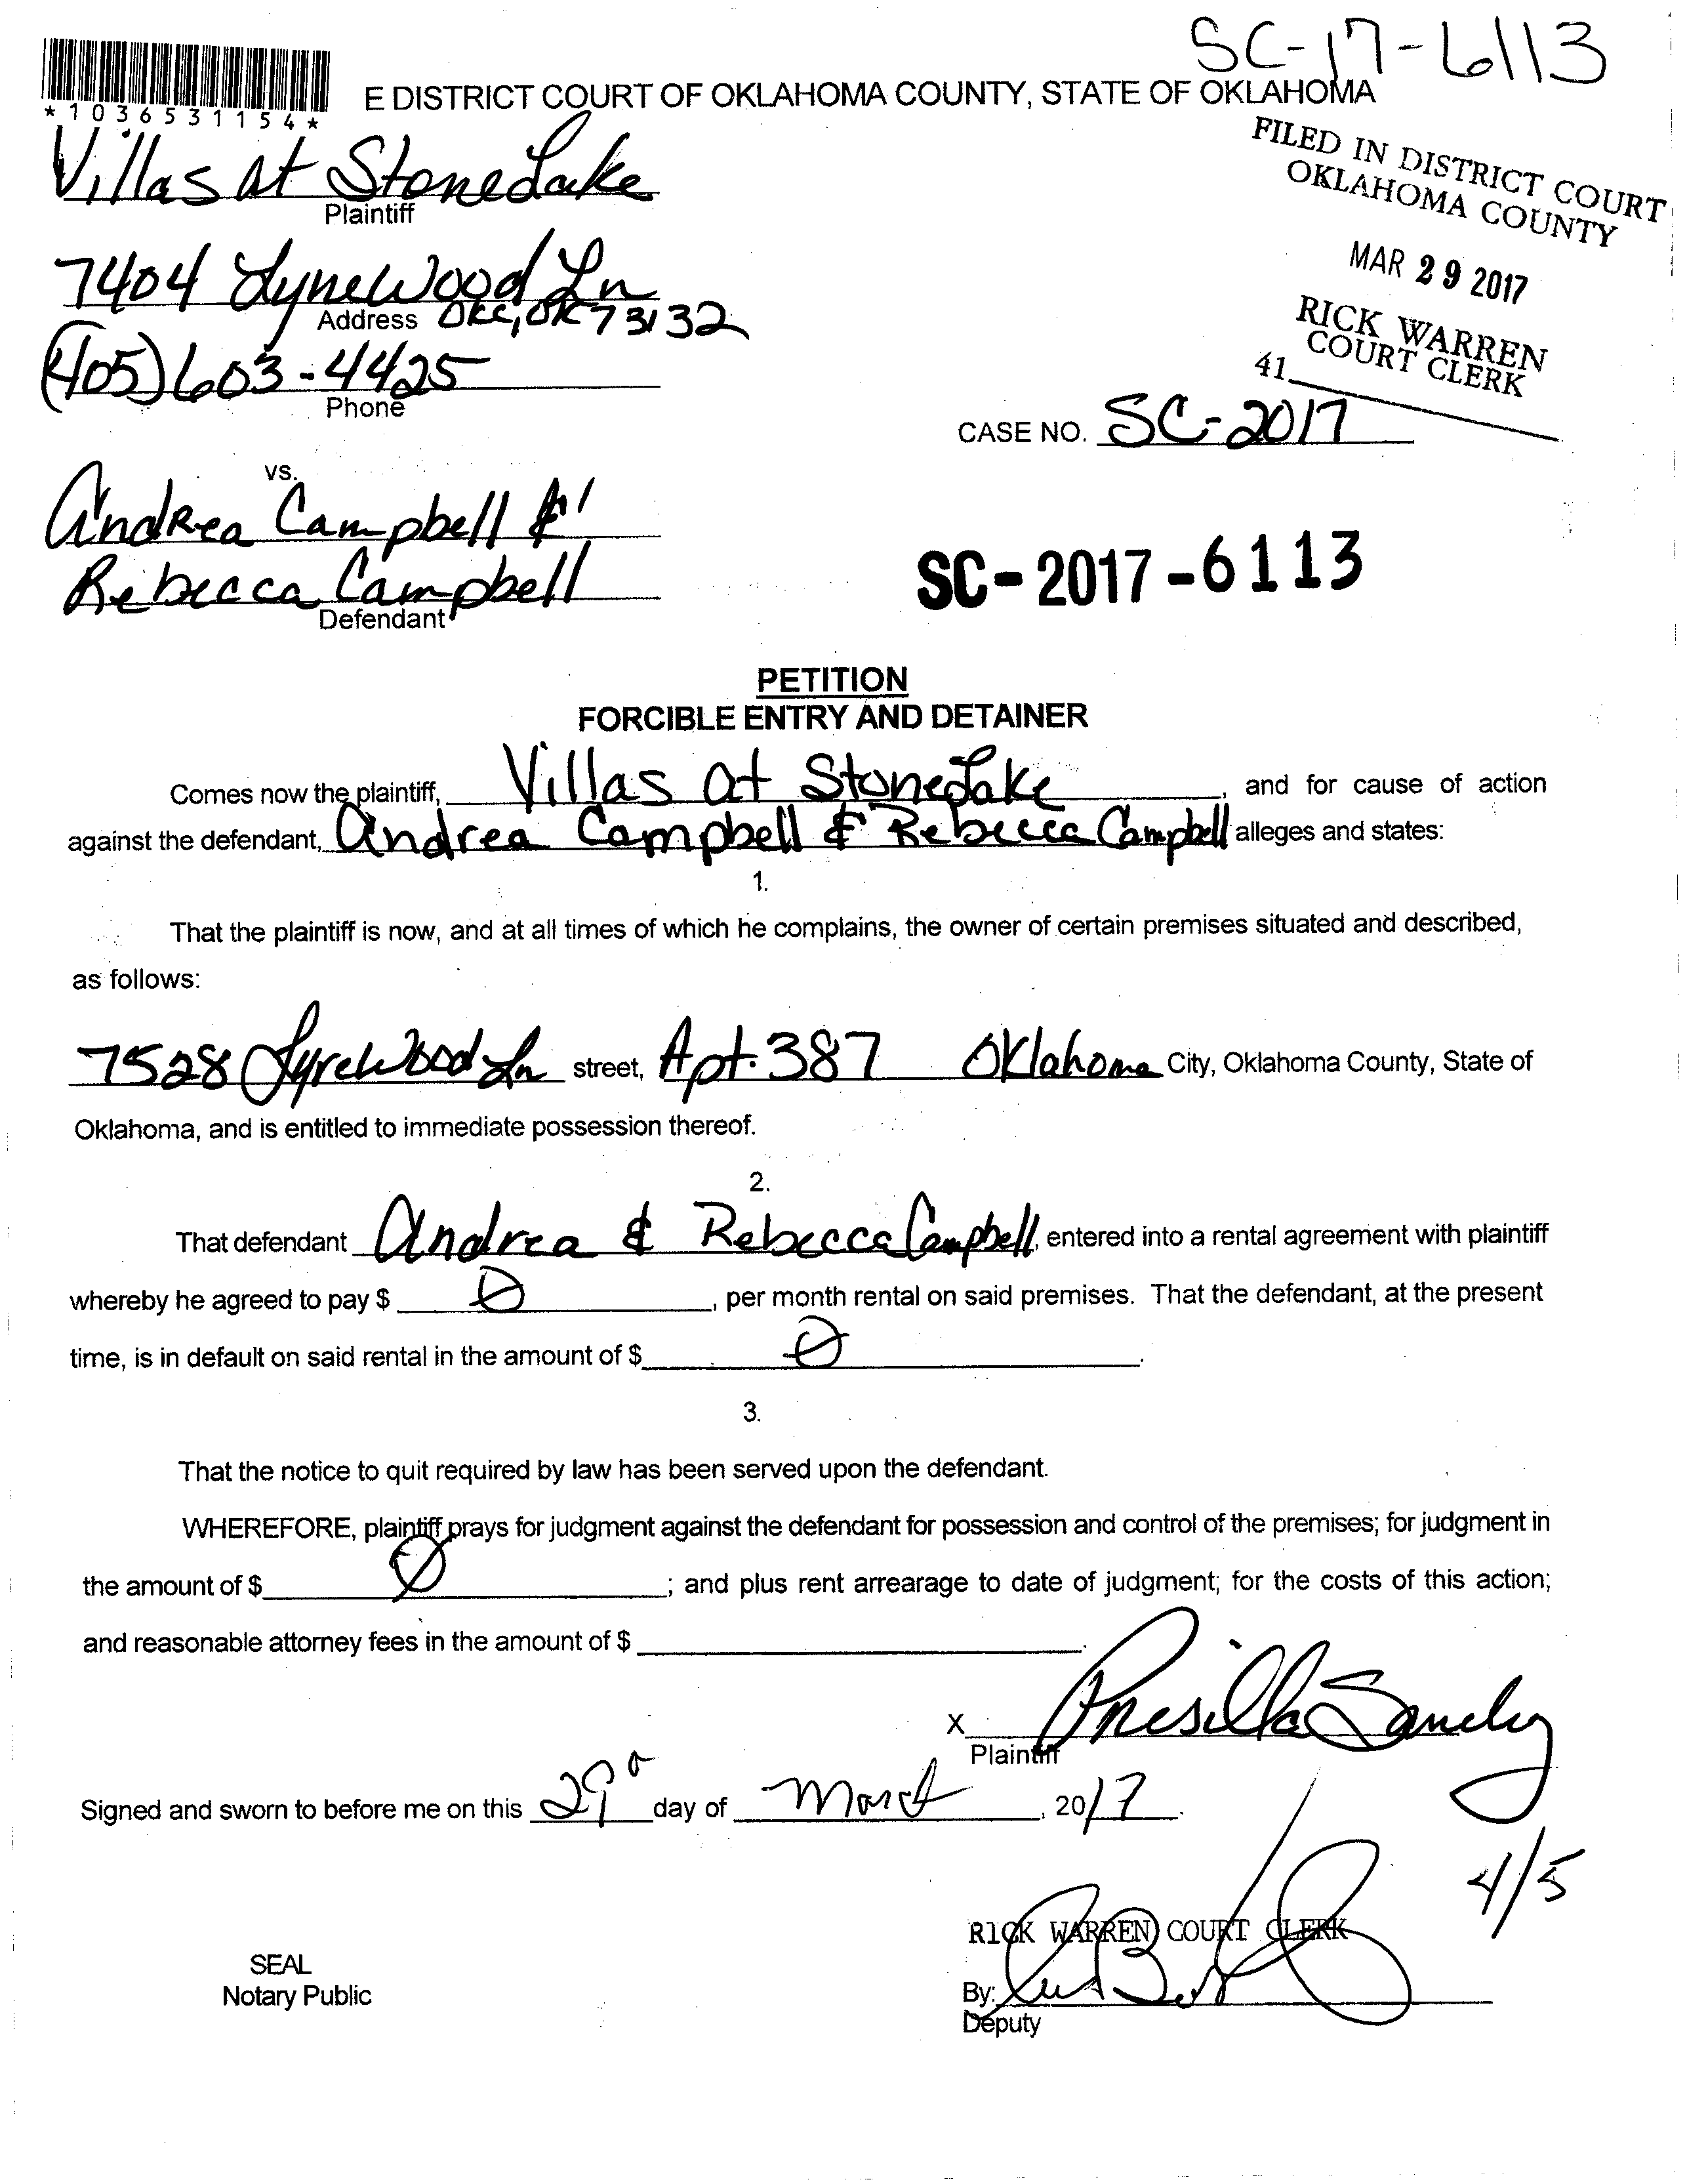 SC-17-6113
*1036531154*
E DISTRICT COURT OF OKLAHOMA COUNTY, STATE OF OKLAHOMA
Villas at StoneLake
Plaintiff
FILED IN DISTRICT COURT
OKLAHOMA COUNTY
MAR 29 2017
RICK WARREN
COURT CLERK
41
7404 Lynewood Ln
Address OKC, OK 73132
(405) 603-4425
Phone
CASE NO. SC-2017
vs.
Andrea Campbell &
Rebecca Campbell
Defendant
SC-2017-6113
PETITION
FORCIBLE ENTRY AND DETAINER
Comes now the plaintiff, Villas at StoneLake, and for cause of action
against the defendant, Andrea Campbell & Rebecca Campbell alleges and states:
1.
That the plaintiff is now, and at all times of which he complains, the owner of certain premises situated and described,
as follows:
7528 Lyrewood Ln street, Apt. 387 Oklahoma City, Oklahoma County, State of
Oklahoma, and is entitled to immediate possession thereof.
2.
That defendant Andrea & Rebecca Campbell, entered into a rental agreement with plaintiff
whereby he agreed to pay $ 0, per month rental on said premises. That the defendant, at the present
time, is in default on said rental in the amount of $ 0.
3.
That the notice to quit required by law has been served upon the defendant.
WHEREFORE, plaintiff prays for judgment against the defendant for possession and control of the premises; for judgment in
the amount of $ 0; and plus rent arrearage to date of judgment; for the costs of this action;
and reasonable attorney fees in the amount of $.
X Prisilla Sanchez
Plaintiff
Signed and sworn to before me on this 29 day of March, 2017.
4/5
RICK WARREN COURT CLERK
SEAL
Notary Public
By:
Deputy